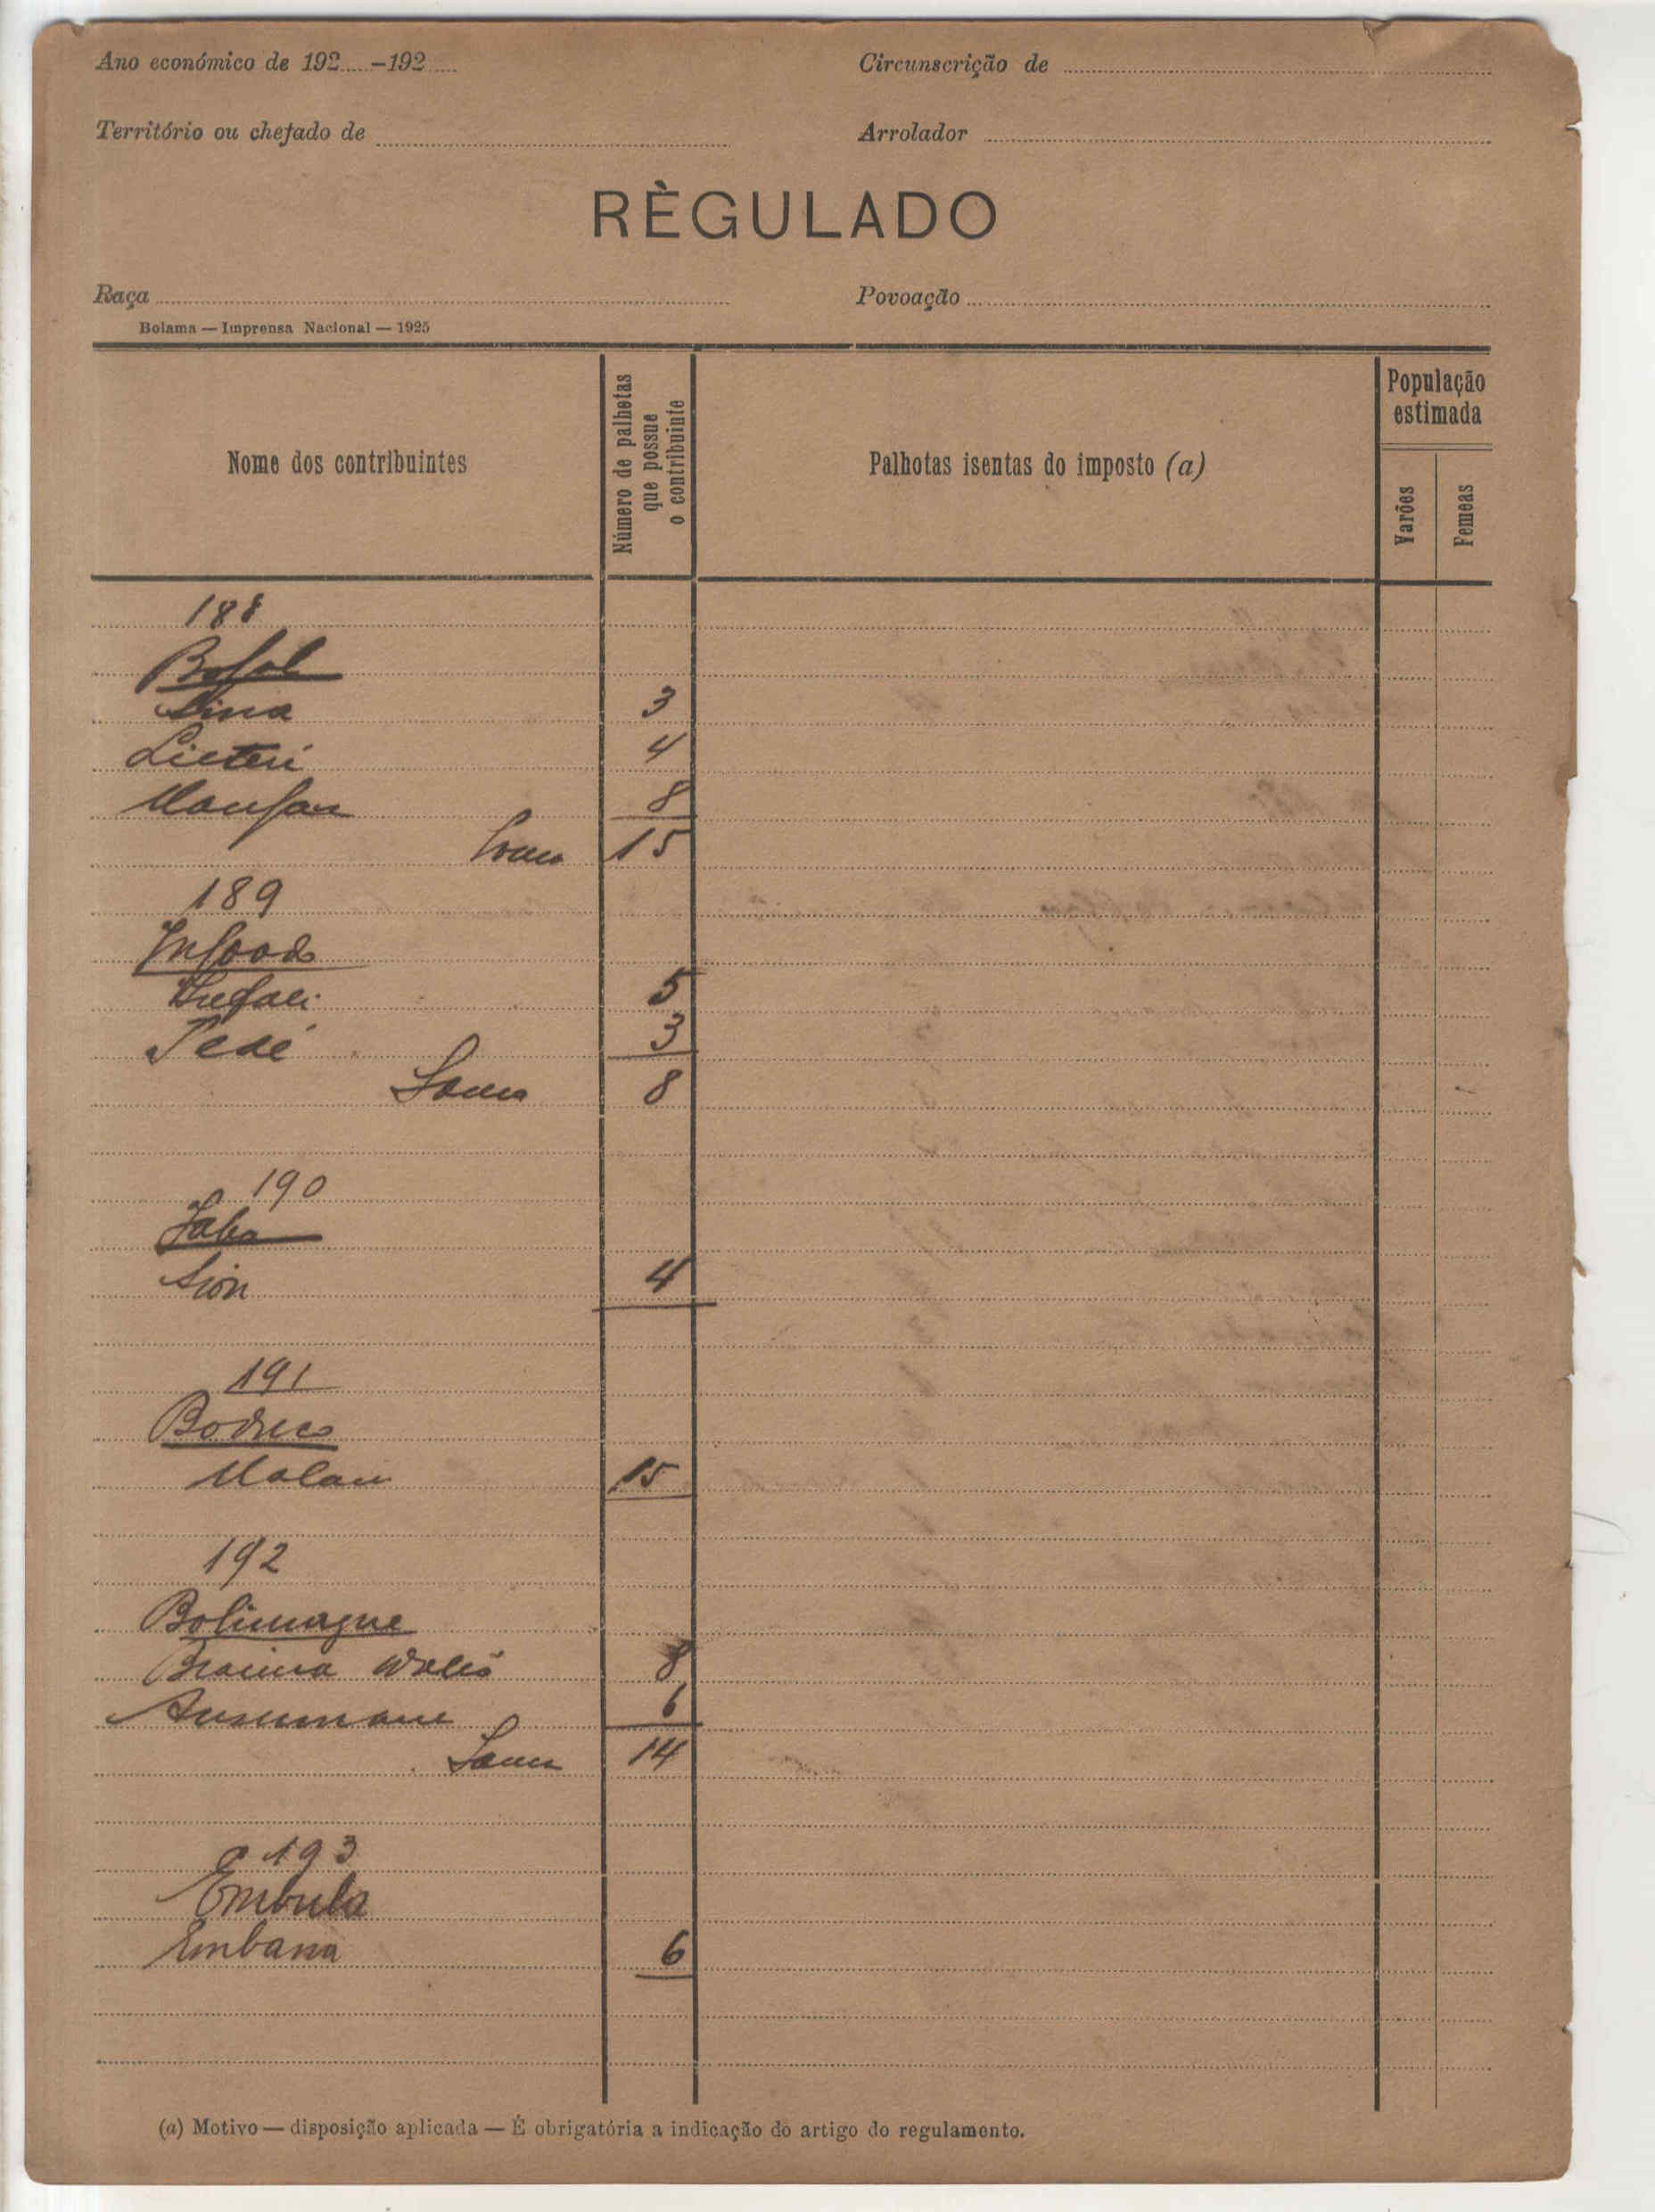 Ano económico de 192.....-192.....
Circunscrição de
Território ou chefado de
Arrolador
RÈGULADO
Raça
Povoação
Bolama — Imprensa Nacional — 1925
Nome dos contribuintes
Número de palhetas que possue o contribuinte
Palhotas isentas do imposto (a)
População estimada
Varões
Femeas
188
Lina 3
4
8
Soma 15
189
5
3
Soma 8
190
Jaba
Sion 4
191
Malan 15
192
Bolimague
Braima 8
Ansumane 6
Soma 14
193
Embula
Embana 6
(a) Motivo — disposição aplicada — É obrigatória a indicação do artigo do regulamento.